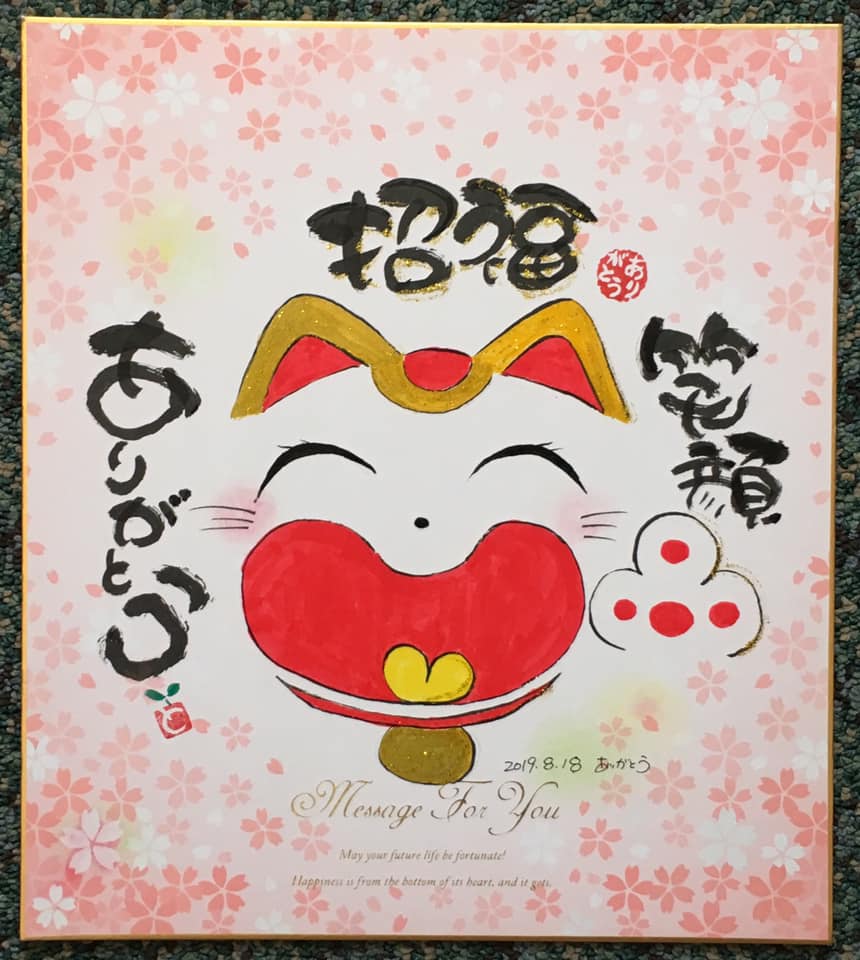 招福
ありがとう
笑顔
ありがとう
と
2019.8.18 ありがとう
Message For You
May your future life be fortunate!
Happiness is from the bottom of its heart, and it gets.